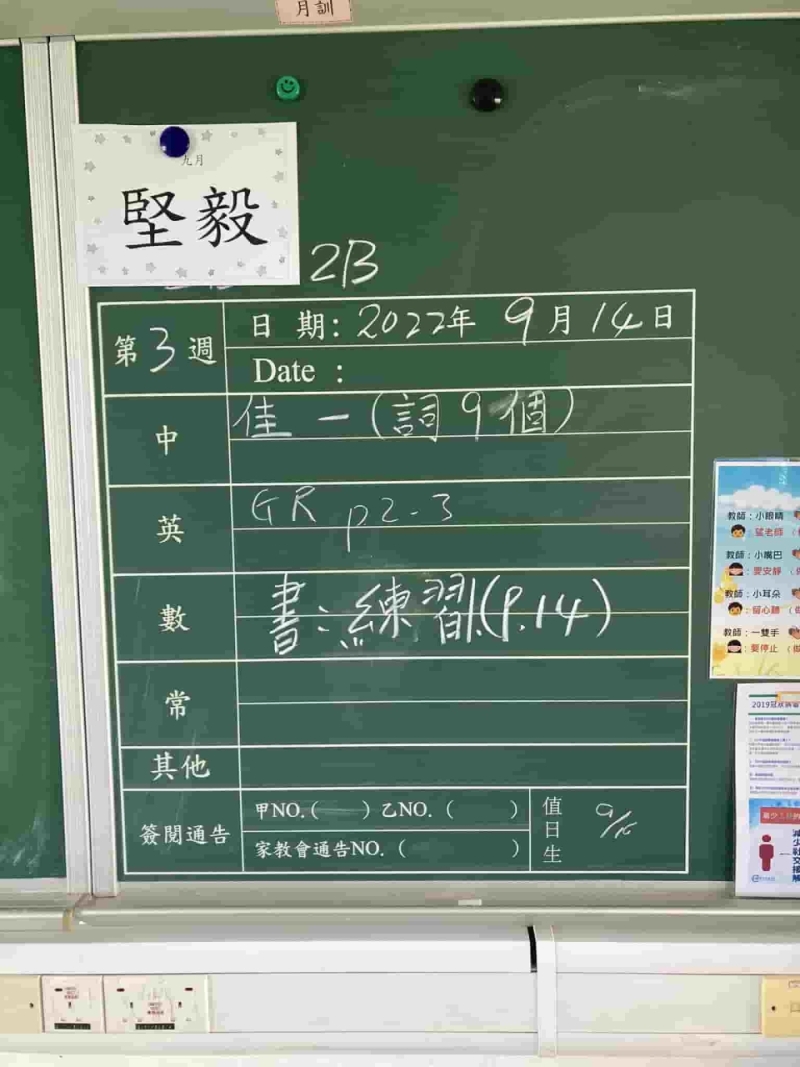 月訓
九月
堅毅
2B
第3週
日期：2022年9月14日
Date :
中
佳一(詞9個)
英
GR p2-3
數
書：練習(P.14)
常
其他
簽閱通告
甲NO.( ) 乙NO. ( )
家教會通告NO. ( )
值日生
9/15
教師：小眼睛
：望老師
教師：小嘴巴
：要安靜
教師：小耳朵
：留心聽
教師：一雙手
：要停止